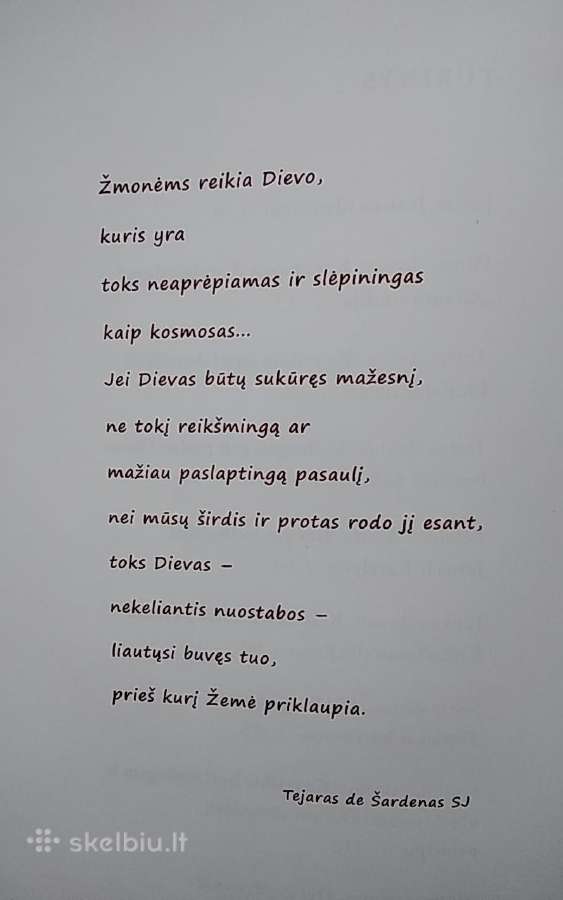 Žmonėms reikia Dievo,
kuris yra
toks neaprėpiamas ir slėpiningas
kaip kosmosas...
Jei Dievas būtų sukūręs mažesnį,
ne tokį reikšmingą ar
mažiau paslaptingą pasaulį,
nei mūsų širdis ir protas rodo jį esant,
toks Dievas –
nekeliantis nuostabos –
liautųsi buvęs tuo,
prieš kurį Žemė priklaupia.
Tejaras de Šardenas SJ
skelbiu.lt